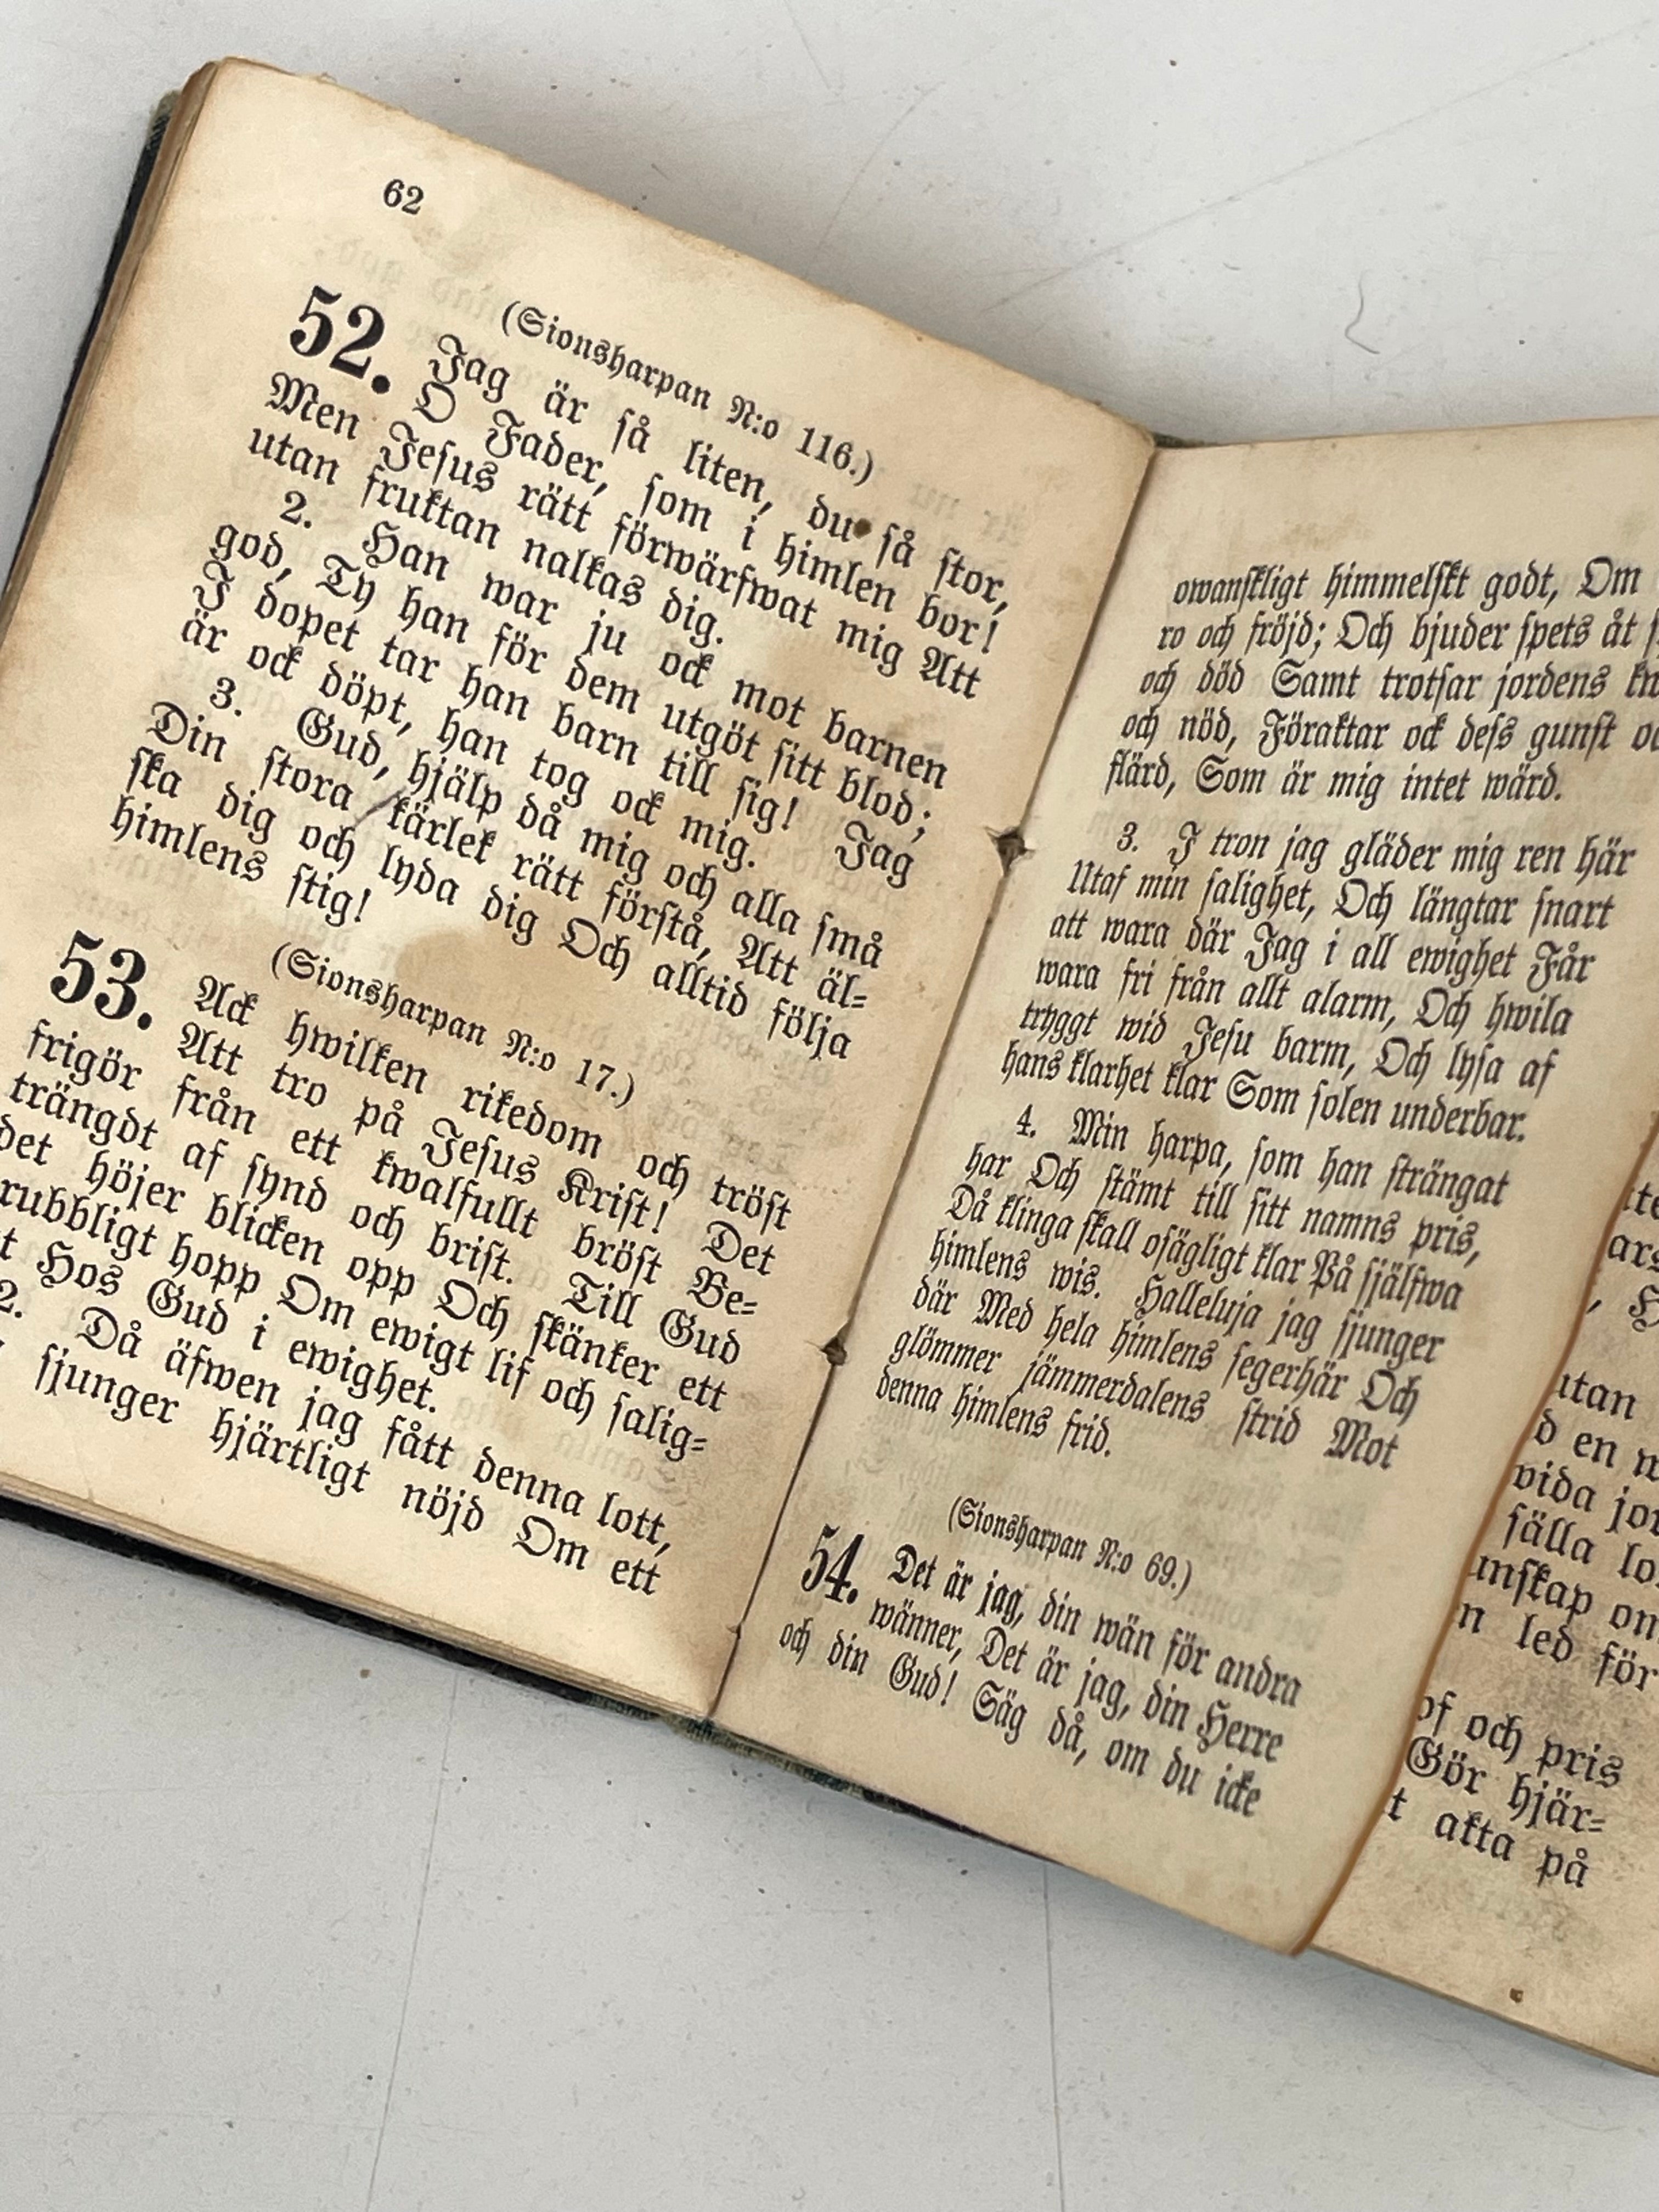 62
(Sionsharpan N:o 116.)
52. Jag är så liten, du så stor,
O Fader, som i himlen bor!
Men Jesus rätt förwärfwat mig Att
utan fruktan nalkas dig.
2. Han war ju ock mot barnen
god, Ty han för dem utgöt sitt blod;
I dopet tar han barn till sig! Jag
är ock döpt, han tog ock mig.
3. Gud, hjälp då mig och alla små
Din stora kärlek rätt förstå, Att äl-
ska dig och lyda dig Och alltid följa
himlens stig!
(Sionsharpan N:o 17.)
53. Ack hwilken rikedom och tröst
Att tro på Jesus Krist! Det
frigör från ett kwalfullt bröst Be-
trängdt af synd och brist. Till Gud
det höjer blicken opp Och skänker ett
rubbligt hopp Om ewigt lif och salig-
t Hos Gud i ewighet.
2. Då äfwen jag fått denna lott,
sjunger hjärtligt nöjd Om ett
owanskligt himmelskt godt, Om
ro och fröjd; Och bjuder spets åt
och död Samt trotsar jordens
och nöd, Föraktar ock dess gunst
flärd, Som är mig intet wärd.
3. I tron jag gläder mig ren här
Utaf min salighet, Och längtar snart
att wara där Jag i all ewighet Får
wara fri från allt alarm, Och hwila
tryggt wid Jesu barm, Och lysa af
hans klarhet klar Som solen underbar.
4. Min harpa, som han strängat
har Och stämt till sitt namns pris,
Då klinga skall osägligt klar På själfwa
himlens wis. Halleluja jag sjunger
där Med hela himlens segerhär Och
glömmer jämmerdalens strid Mot
denna himlens frid.
(Sionsharpan N:o 69.)
54. Det är jag, din wän för andra
wänner, Det är jag, din Herre
och din Gud! Säg då, om du icke
utan
d en
vida
sälla
om
n led för
och pris
Gör hjär-
t akta på